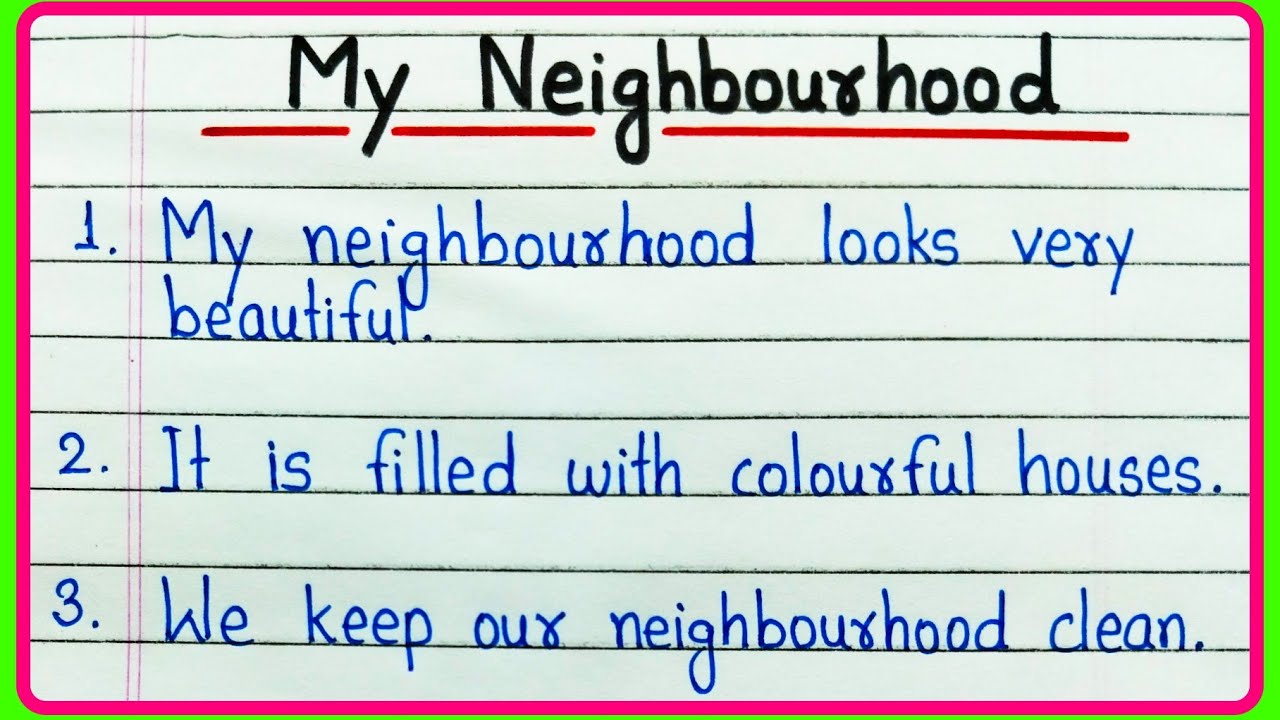 My Neighbourhood
1. My neighbourhood looks very
beautiful.
2. It is filled with colourful houses.
3. We keep our neighbourhood clean.